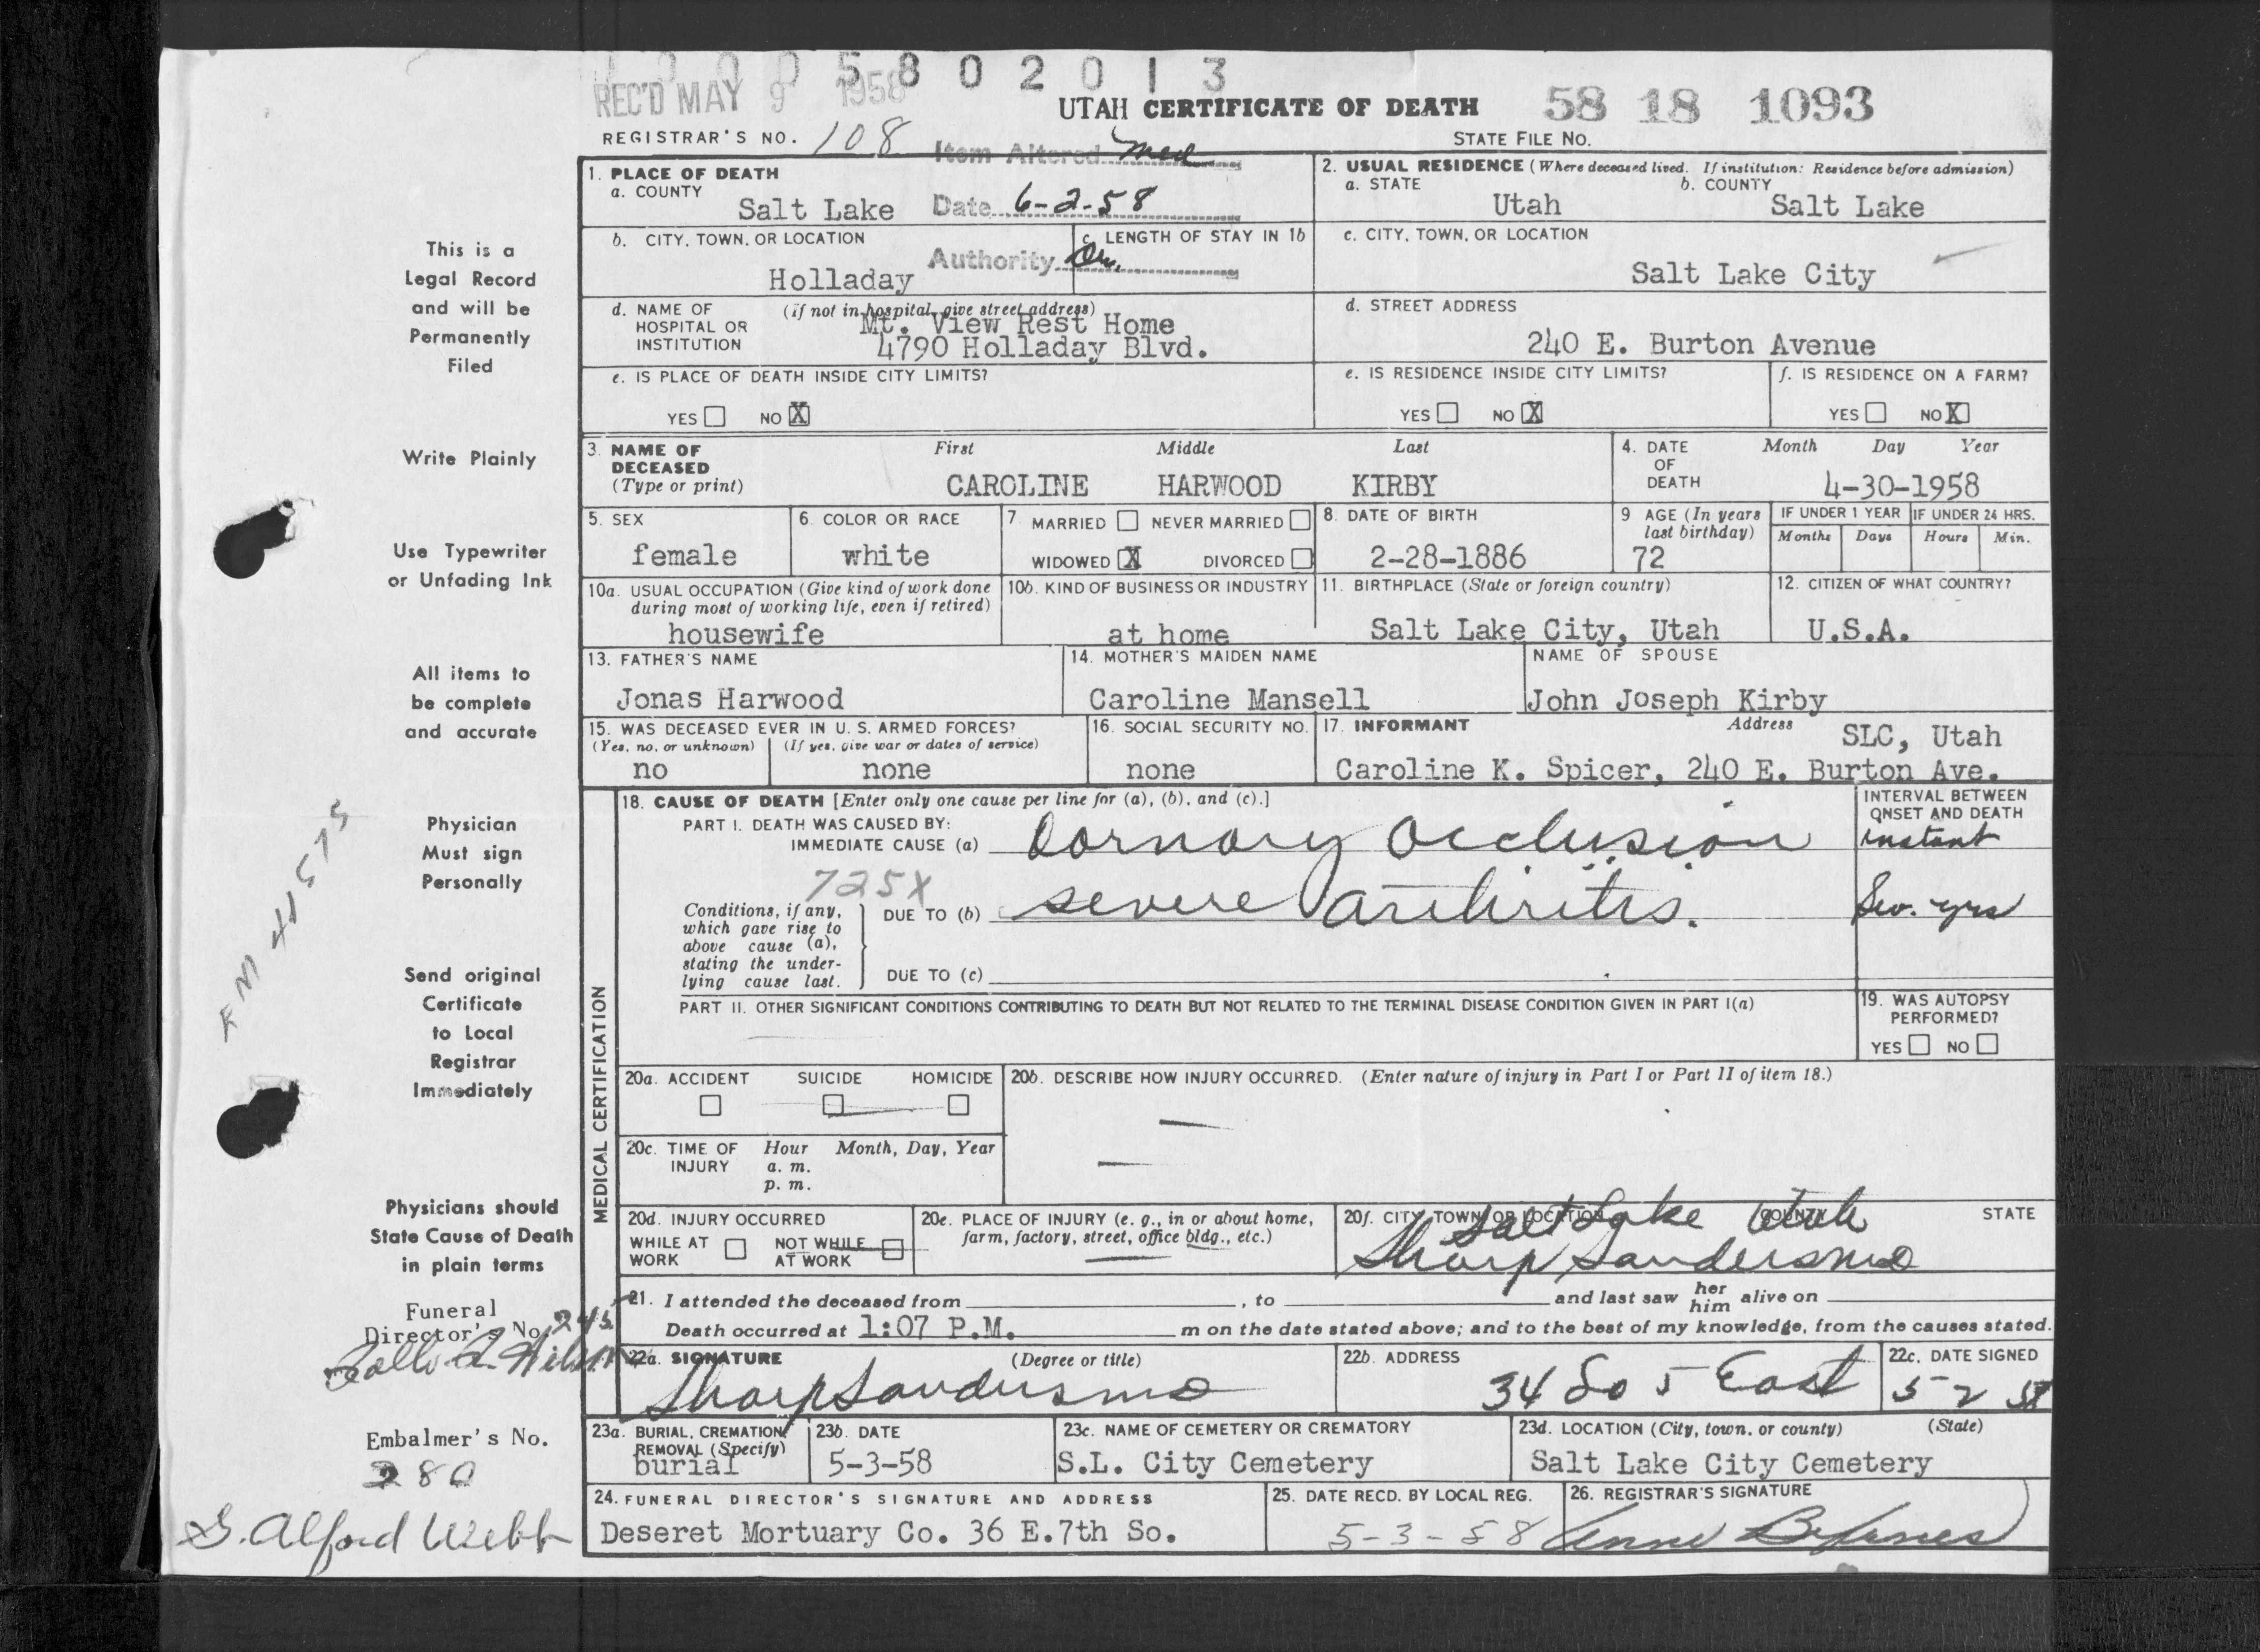 58 0 2 0 1 3
REC'D MAY 9 1958
UTAH CERTIFICATE OF DEATH
58 18 1093
REGISTRAR'S NO. 108
STATE FILE NO.
Item Altered med
Date 6-2-58
Authority
1. PLACE OF DEATH
a. COUNTY
Salt Lake
2. USUAL RESIDENCE (Where deceased lived. If institution: Residence before admission)
a. STATE b. COUNTY
Utah Salt Lake
b. CITY, TOWN, OR LOCATION
Holladay
c. LENGTH OF STAY IN 1b
c. CITY, TOWN, OR LOCATION
Salt Lake City
d. NAME OF HOSPITAL OR INSTITUTION
(if not in hospital, give street address)
Mt. View Rest Home
4790 Holladay Blvd.
d. STREET ADDRESS
240 E. Burton Avenue
e. IS PLACE OF DEATH INSIDE CITY LIMITS?
YES NO X
e. IS RESIDENCE INSIDE CITY LIMITS?
YES NO X
f. IS RESIDENCE ON A FARM?
YES NO X
3. NAME OF DECEASED (Type or print)
First Middle Last
CAROLINE HARWOOD KIRBY
4. DATE OF DEATH
Month Day Year
4-30-1958
5. SEX
female
6. COLOR OR RACE
white
7. MARRIED NEVER MARRIED
WIDOWED X DIVORCED
8. DATE OF BIRTH
2-28-1886
9 AGE (In years last birthday)
72
IF UNDER 1 YEAR
Months Days
IF UNDER 24 HRS.
Hours Min.
10a. USUAL OCCUPATION (Give kind of work done during most of working life, even if retired)
housewife
10b. KIND OF BUSINESS OR INDUSTRY
at home
11. BIRTHPLACE (State or foreign country)
Salt Lake City, Utah
12. CITIZEN OF WHAT COUNTRY?
U.S.A.
13. FATHER'S NAME
Jonas Harwood
14. MOTHER'S MAIDEN NAME
Caroline Mansell
NAME OF SPOUSE
John Joseph Kirby
15. WAS DECEASED EVER IN U. S. ARMED FORCES?
(Yes, no, or unknown) (If yes, give war or dates of service)
no none
16. SOCIAL SECURITY NO.
none
17. INFORMANT Address
SLC, Utah
Caroline K. Spicer, 240 E. Burton Ave.
MEDICAL CERTIFICATION
18. CAUSE OF DEATH [Enter only one cause per line for (a), (b), and (c).]
PART I. DEATH WAS CAUSED BY:
IMMEDIATE CAUSE (a) Cornary Occlusion
INTERVAL BETWEEN ONSET AND DEATH
instant
725X
Conditions, if any, which gave rise to above cause (a), stating the underlying cause last.
DUE TO (b) severe Arthritis.
Sev. yrs
DUE TO (c)
PART II. OTHER SIGNIFICANT CONDITIONS CONTRIBUTING TO DEATH BUT NOT RELATED TO THE TERMINAL DISEASE CONDITION GIVEN IN PART I(a)
19. WAS AUTOPSY PERFORMED?
YES NO
20a. ACCIDENT SUICIDE HOMICIDE
20b. DESCRIBE HOW INJURY OCCURRED. (Enter nature of injury in Part I or Part II of item 18.)
20c. TIME OF INJURY
Hour Month, Day, Year
a. m.
p. m.
20d. INJURY OCCURRED
WHILE AT WORK NOT WHILE AT WORK
20e. PLACE OF INJURY (e. g., in or about home, farm, factory, street, office bldg., etc.)
20f. CITY, TOWN, OR LOCATION COUNTY STATE
Salt Lake Utah
Sharp Sanders MD
21. I attended the deceased from , to and last saw her him alive on
Death occurred at 1:07 P.M. m on the date stated above; and to the best of my knowledge, from the causes stated.
22a. SIGNATURE (Degree or title)
Sharp Sanders MD
22b. ADDRESS
34 So 5 East
22c. DATE SIGNED
5-2 58
23a. BURIAL, CREMATION, REMOVAL (Specify)
burial
23b. DATE
5-3-58
23c. NAME OF CEMETERY OR CREMATORY
S.L. City Cemetery
23d. LOCATION (City, town, or county) (State)
Salt Lake City Cemetery
24. FUNERAL DIRECTOR'S SIGNATURE AND ADDRESS
Deseret Mortuary Co. 36 E.7th So.
25. DATE RECD. BY LOCAL REG.
5-3-58
26. REGISTRAR'S SIGNATURE
This is a
Legal Record
and will be
Permanently
Filed
Write Plainly
Use Typewriter
or Unfading Ink
All items to
be complete
and accurate
Physician
Must sign
Personally
Send original
Certificate
to Local
Registrar
Immediately
Physicians should
State Cause of Death
in plain terms
Funeral
Director's No. 245
Embalmer's No.
280
G. Alford Webb